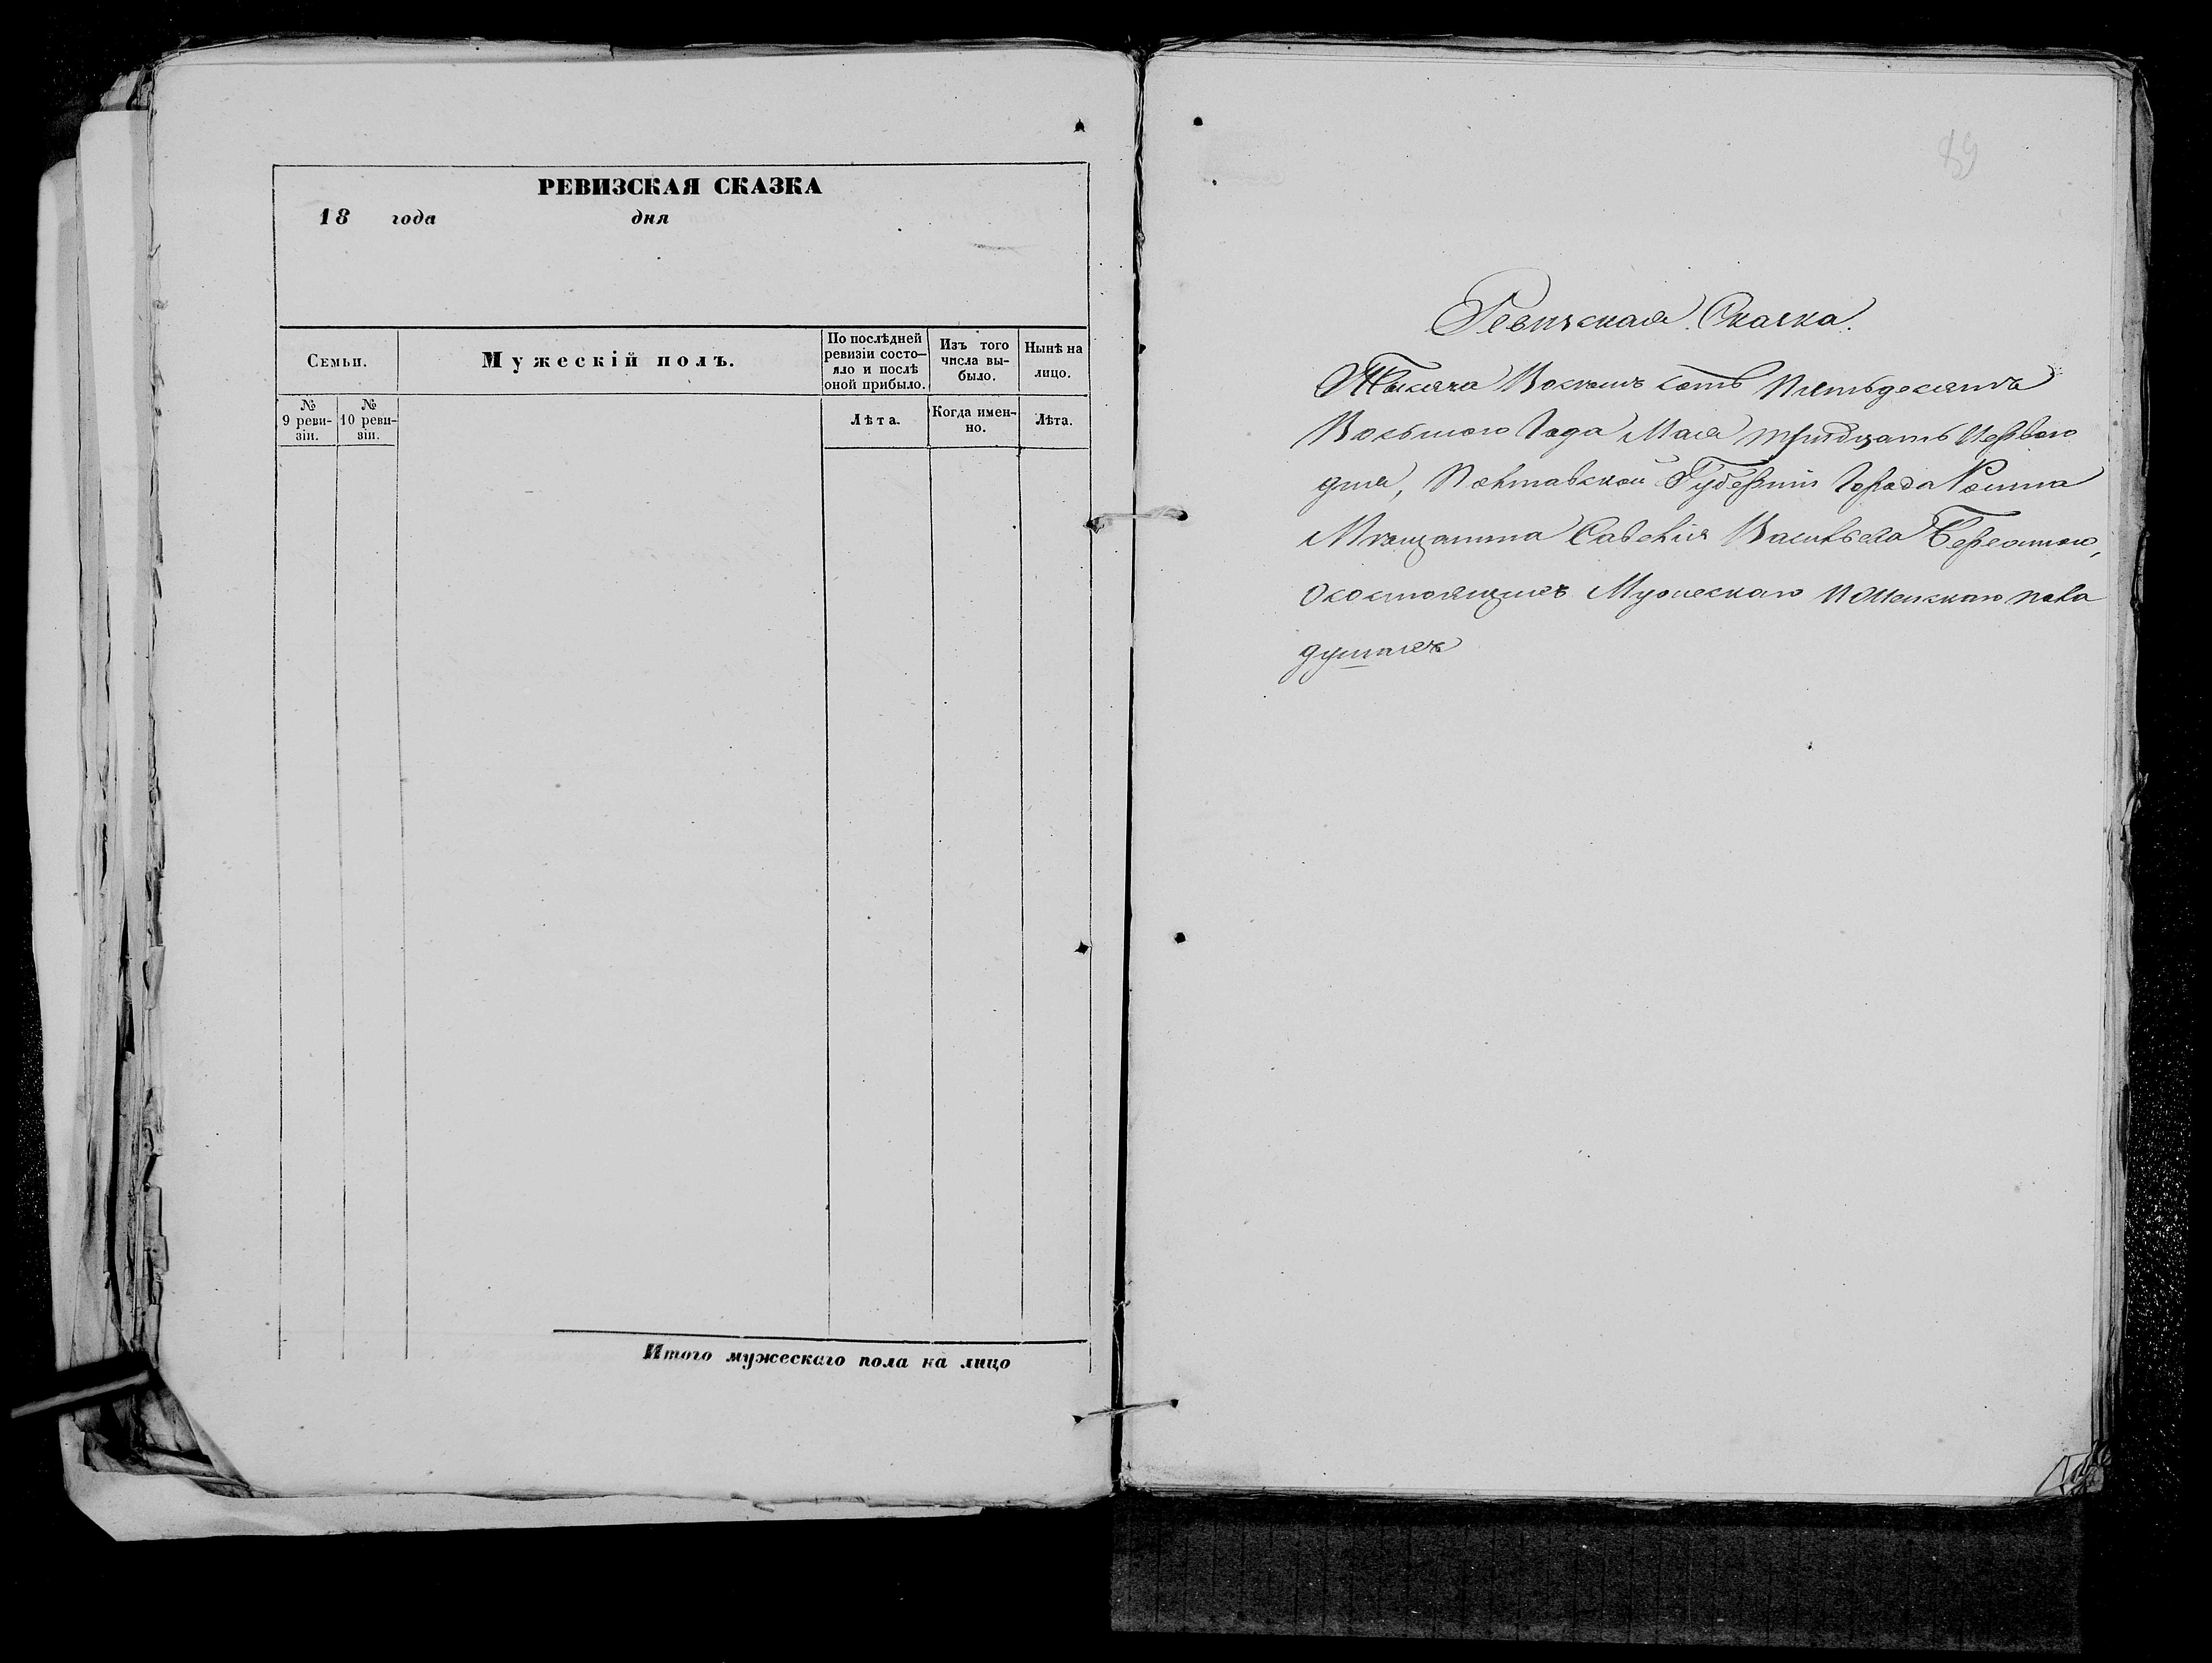 РЕВИЗСКАЯ СКАЗКА
18 года дня
Семьи.
Мужескій полъ.
По послѣдней
ревизіи состо-
яло и послѣ
оной прибыло.
Изъ того
числа вы-
было.
Нынѣ на
лицо.
№
9 реви-
зіи.
№
10 реви-
зіи.
Лѣта.
Когда имен-
но.
Лѣта.
Итого мужескаго пола на лицо
89
Ревизская Сказка.
Тысяча Восемь сотъ Пятьдесятъ
Восьмого Года Мая тридцать Первого
дня, Полтавской Губерніи Города Ромна
Мѣщанина Савелія Васильева
о состоящихъ Мужескаго и Женскаго пола
душахъ